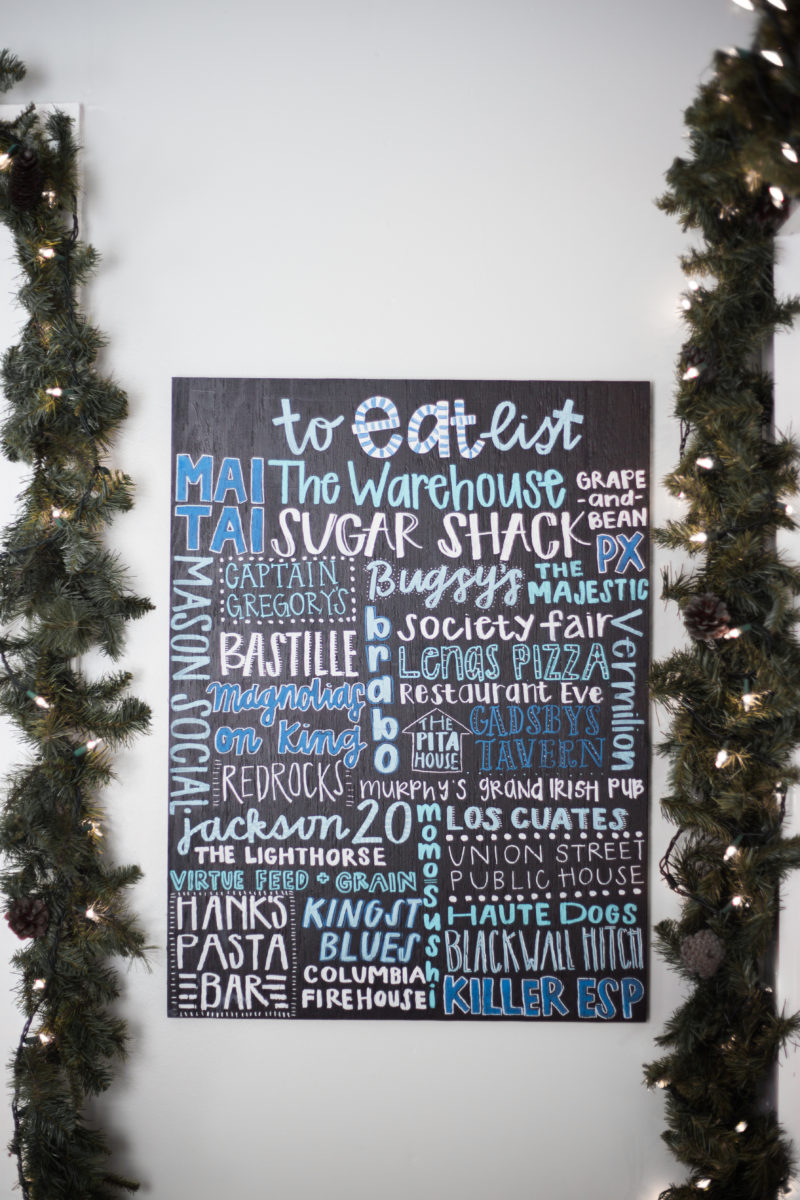 to eat list
MAI
TAI
The Warehouse
GRAPE
-and-
BEAN
SUGAR SHACK
PX
MASON SOCIAL
CAPTAIN
GREGORY'S
Bugsy's
THE
MAJESTIC
BASTILLE
brabo
society fair
Vermilion
Lenas PIZZA
Magnolias
on King
Restaurant Eve
THE
PITA
HOUSE
GADSBYS
TAVERN
REDROCKS
MURPHY'S GRAND IRISH PUB
jackson 20
momo sushi
LOS CUATES
THE LIGHTHORSE
UNION STREET
PUBLIC HOUSE
VIRTUE FEED + GRAIN
HANK'S
PASTA
BAR
KINGST
BLUES
HAUTE DOGS
BLACKWALL HITCH
COLUMBIA
FIREHOUSE
KILLER ESP